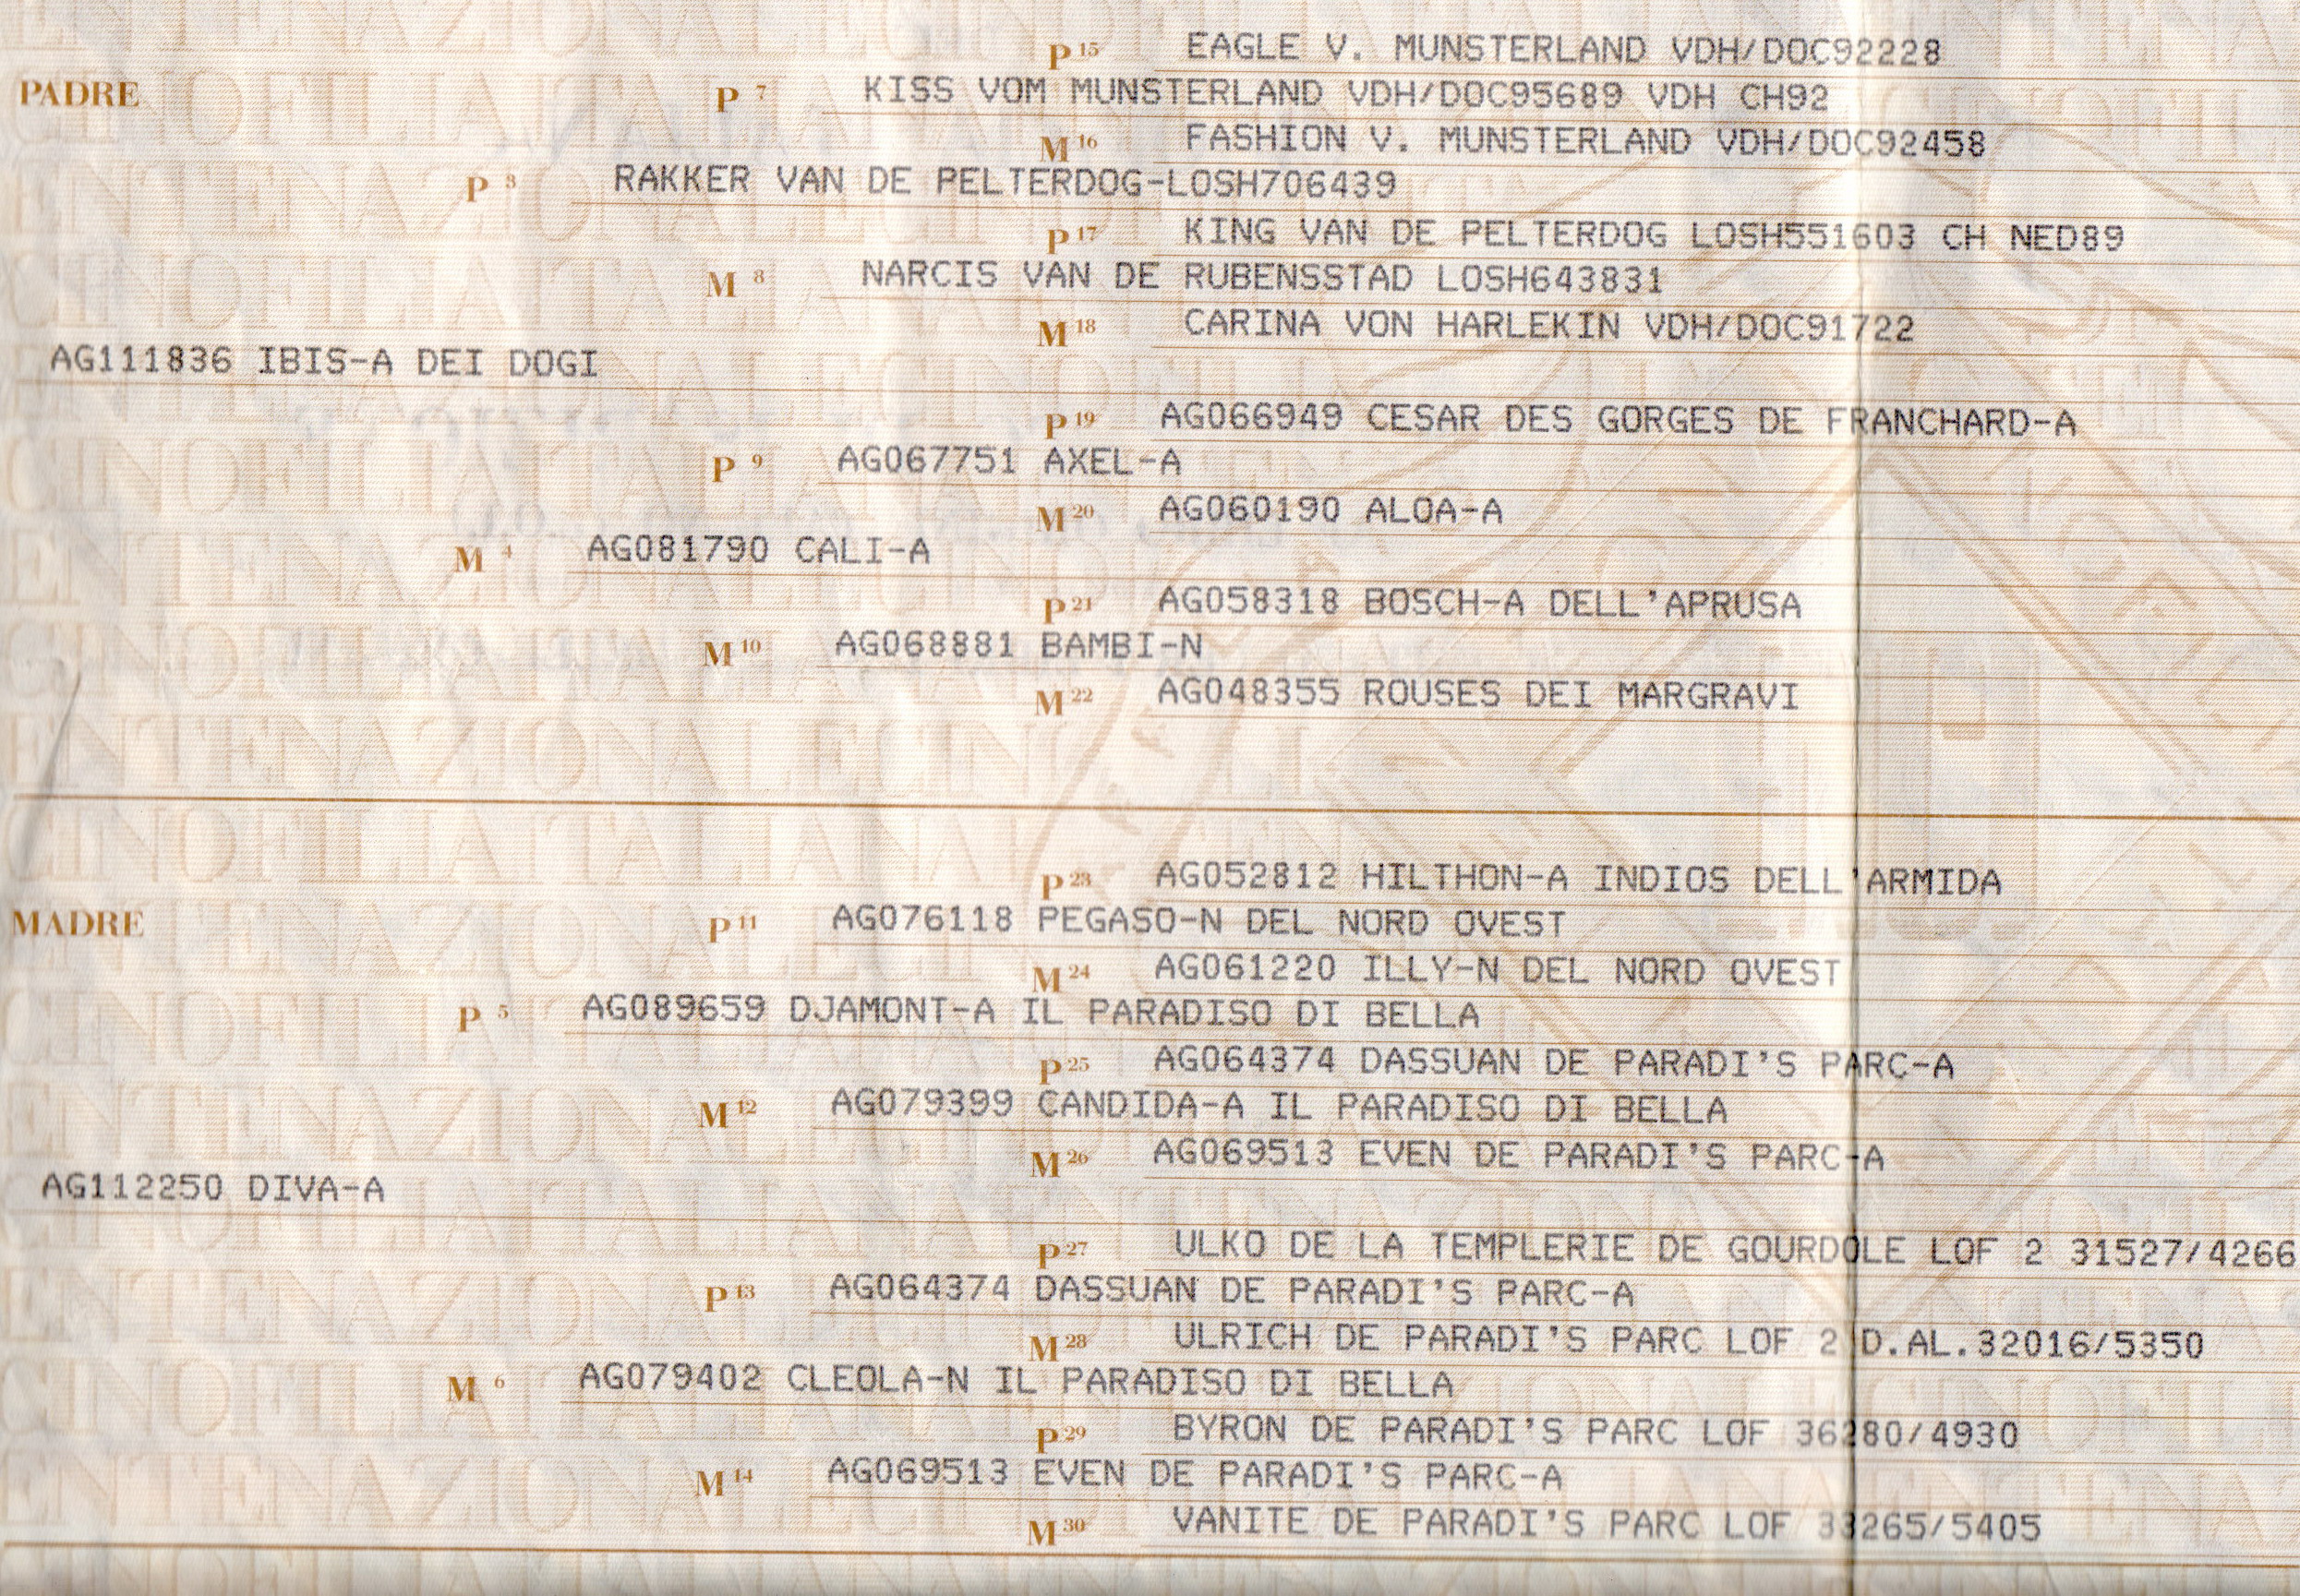 P 15 EAGLE V. MUNSTERLAND VDH/DOC92228
PADRE P 7 KISS VOM MUNSTERLAND VDH/DOC95689 VDH CH92
M 16 FASHION V. MUNSTERLAND VDH/DOC92458
P 3 RAKKER VAN DE PELTERDOG-LOSH706439
P 17 KING VAN DE PELTERDOG LOSH551603 CH NED89
M 8 NARCIS VAN DE RUBENSSTAD LOSH643831
M 18 CARINA VON HARLEKIN VDH/DOC91722
AG111836 IBIS-A DEI DOGI
P 19 AG066949 CESAR DES GORGES DE FRANCHARD-A
P 9 AG067751 AXEL-A
M 20 AG060190 ALOA-A
M 4 AG081790 CALI-A
P 21 AG058318 BOSCH-A DELL'APRUSA
M 10 AG068881 BAMBI-N
M 22 AG048355 ROUSES DEI MARGRAVI
P 23 AG052812 HILTHON-A INDIOS DELL'ARMIDA
MADRE P 11 AG076118 PEGASO-N DEL NORD OVEST
M 24 AG061220 ILLY-N DEL NORD OVEST
P 5 AG089659 DJAMONT-A IL PARADISO DI BELLA
P 25 AG064374 DASSUAN DE PARADI'S PARC-A
M 12 AG079399 CANDIDA-A IL PARADISO DI BELLA
M 26 AG069513 EVEN DE PARADI'S PARC-A
AG112250 DIVA-A
P 27 ULKO DE LA TEMPLERIE DE GOURDOLE LOF 2 31527/4266
P 13 AG064374 DASSUAN DE PARADI'S PARC-A
M 28 ULRICH DE PARADI'S PARC LOF 2 D.AL.32016/5350
M 6 AG079402 CLEOLA-N IL PARADISO DI BELLA
P 29 BYRON DE PARADI'S PARC LOF 36280/4930
M 14 AG069513 EVEN DE PARADI'S PARC-A
M 30 VANITE DE PARADI'S PARC LOF 33265/5405